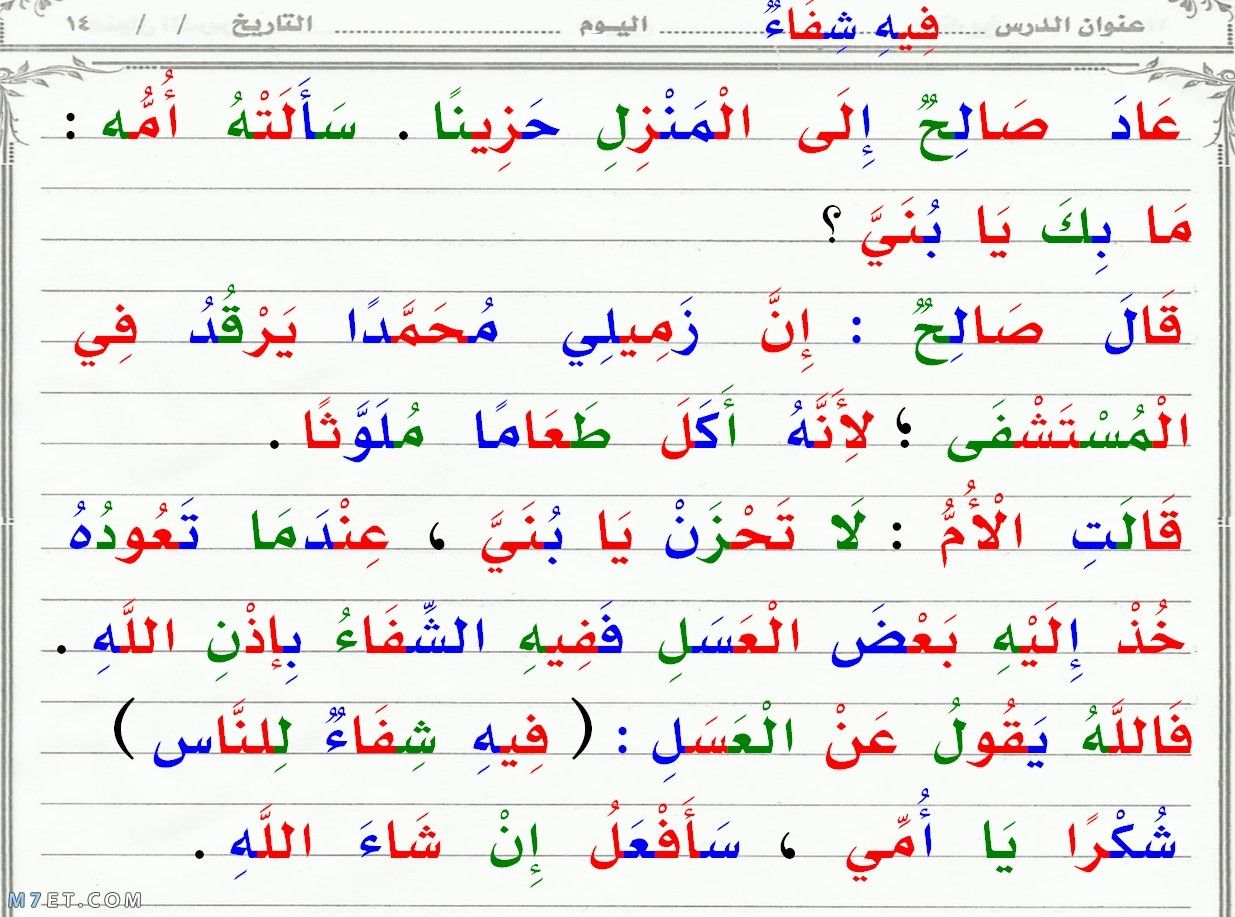 عنوان الدرس .......... فِيهِ شِفَاءٌ .......... اليـوم .......... التاريخ / / ١٤
عَادَ صَالِحٌ إِلَى الْمَنْزِلِ حَزِينًا . سَأَلَتْهُ أُمُّه :
مَا بِكَ يَا بُنَيَّ ؟
قَالَ صَالِحٌ : إِنَّ زَمِيلِي مُحَمَّدًا يَرْقُدُ فِي
الْمُسْتَشْفَى ؛ لِأَنَّهُ أَكَلَ طَعَامًا مُلَوَّثًا .
قَالَتِ الْأُمُّ : لَا تَحْزَنْ يَا بُنَيَّ ، عِنْدَمَا تَعُودُهُ
خُذْ إِلَيْهِ بَعْضَ الْعَسَلِ فَفِيهِ الشِّفَاءُ بِإِذْنِ اللَّهِ .
فَاللَّهُ يَقُولُ عَنْ الْعَسَلِ : ( فِيهِ شِفَاءٌ لِلنَّاس )
شُكْرًا يَا أُمِّي ، سَأَفْعَلُ إِنْ شَاءَ اللَّهِ .
M7ET.COM